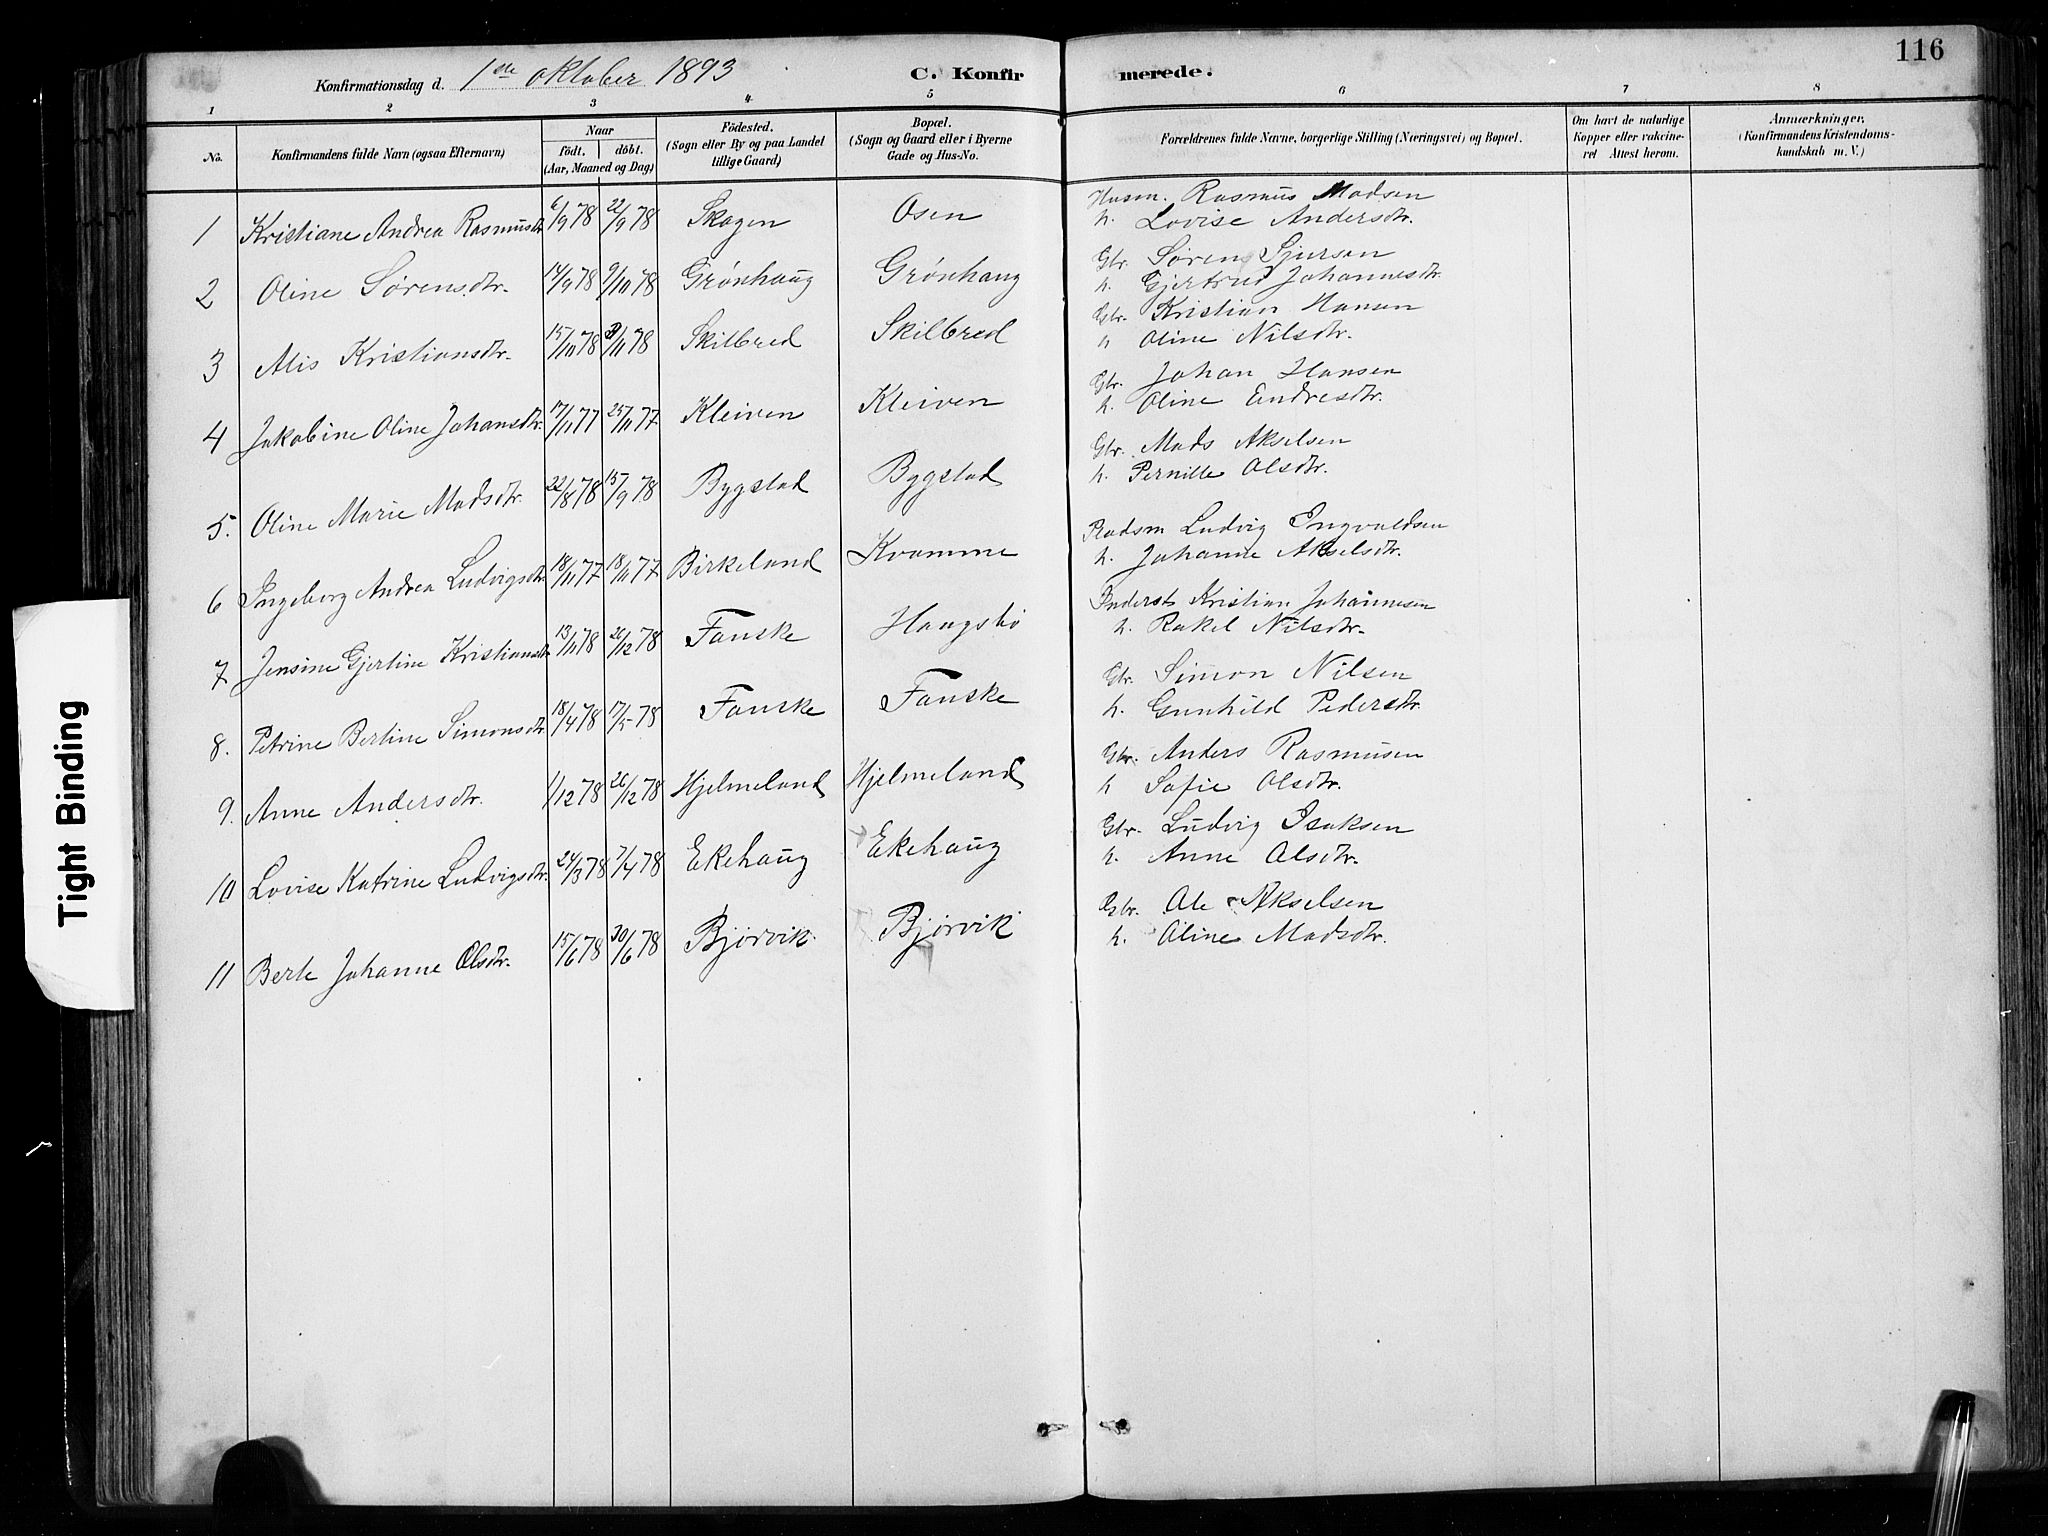 116
Konfirmationsdag d. 1ste oktober 1893
C. Konfirmerede.
1 2 3 4 5 6 7 8
No.
Konfirmandens fulde Navn (ogsaa Efternavn)
Naar
født, døbt.
(Aar, Maaned og Dag)
Fødested.
(Sogn eller By og paa Landet
tillige Gaard)
Bopæl.
(Sogn og Gaard eller i Byerne
Gade og Hus-No.
Forældrenes fulde Navne, borgerlige Stilling (Næringsvei) og Bopæl.
Om havt de naturlige
Kopper eller vakcine-
ret Attest herom.
Anmærkninger.
(Konfirmandens Kristendoms-
kundskab m. V.)
1 Kristiane Andrea Rasmusdtr 6/9 78 22/9 78 Skogen Osen Husm. Rasmus Madsen
h. Lovise Andersdtr.
2 Oline Sørensdtr. 14/9 78 9/10 78 Grønhaug Grønhaug Gbr. Sørens Sjurson
h. Gjertrud Johannesdtr.
3 Alis Kristiansdtr. 15/10 78 3/11 78 Skilbred Skilbred Gbr. Kristian Hansen
h Oline Nilsdtr.
4 Jakobine Oline Johansdtr. 17/11 77 25/11 77 Kleiven Kleiven Gbr. Johan Hansen
h. Oline Endresdtr.
5. Oline Marie Madsdtr. 22/8 78 15/9 78 Bygstad Bygstad Gbr. Mads Akselsen
h. Pernille Olsdtr.
6 Ingeborg Andrea Ludvigsdtr 18/11 77 18/11 77 Birkeland Kvamme Pladsm Ludvig Ingvaldsen
h. Johanne Akselsdtr.
7 Jensine Gjertine Kristiansdtr 13/11 78 26/12 78 Fanske Haugsbø Inderst Kristian Johannesen
h. Rakel Nilsdtr.
8. Petrine Bertine Simonsdtr 18/4 78 17/5 78 Fanske Fanske Gbr. Simon Nilsen
h. Gunhild Pedersdtr.
9. Anne Andersdtr. 1/12 78 26/12 78 Hjelmeland Hjelmeland Gbr. Anders Rasmusen
h Sofie Olsdtr.
10 Lovise Katrine Ludvigsdtr. 24/3 78 7/4 78 Ekehaug Ekehaug Gbr. Ludvig Isaksen
h. Anne Olsdtr.
11 Berte Johanne Olsdtr. 15/6 78 30/6 78 Bjørvik Bjørvik Gbr. Ole Akselsen
h. Oline Madsdtr.
Tight Binding